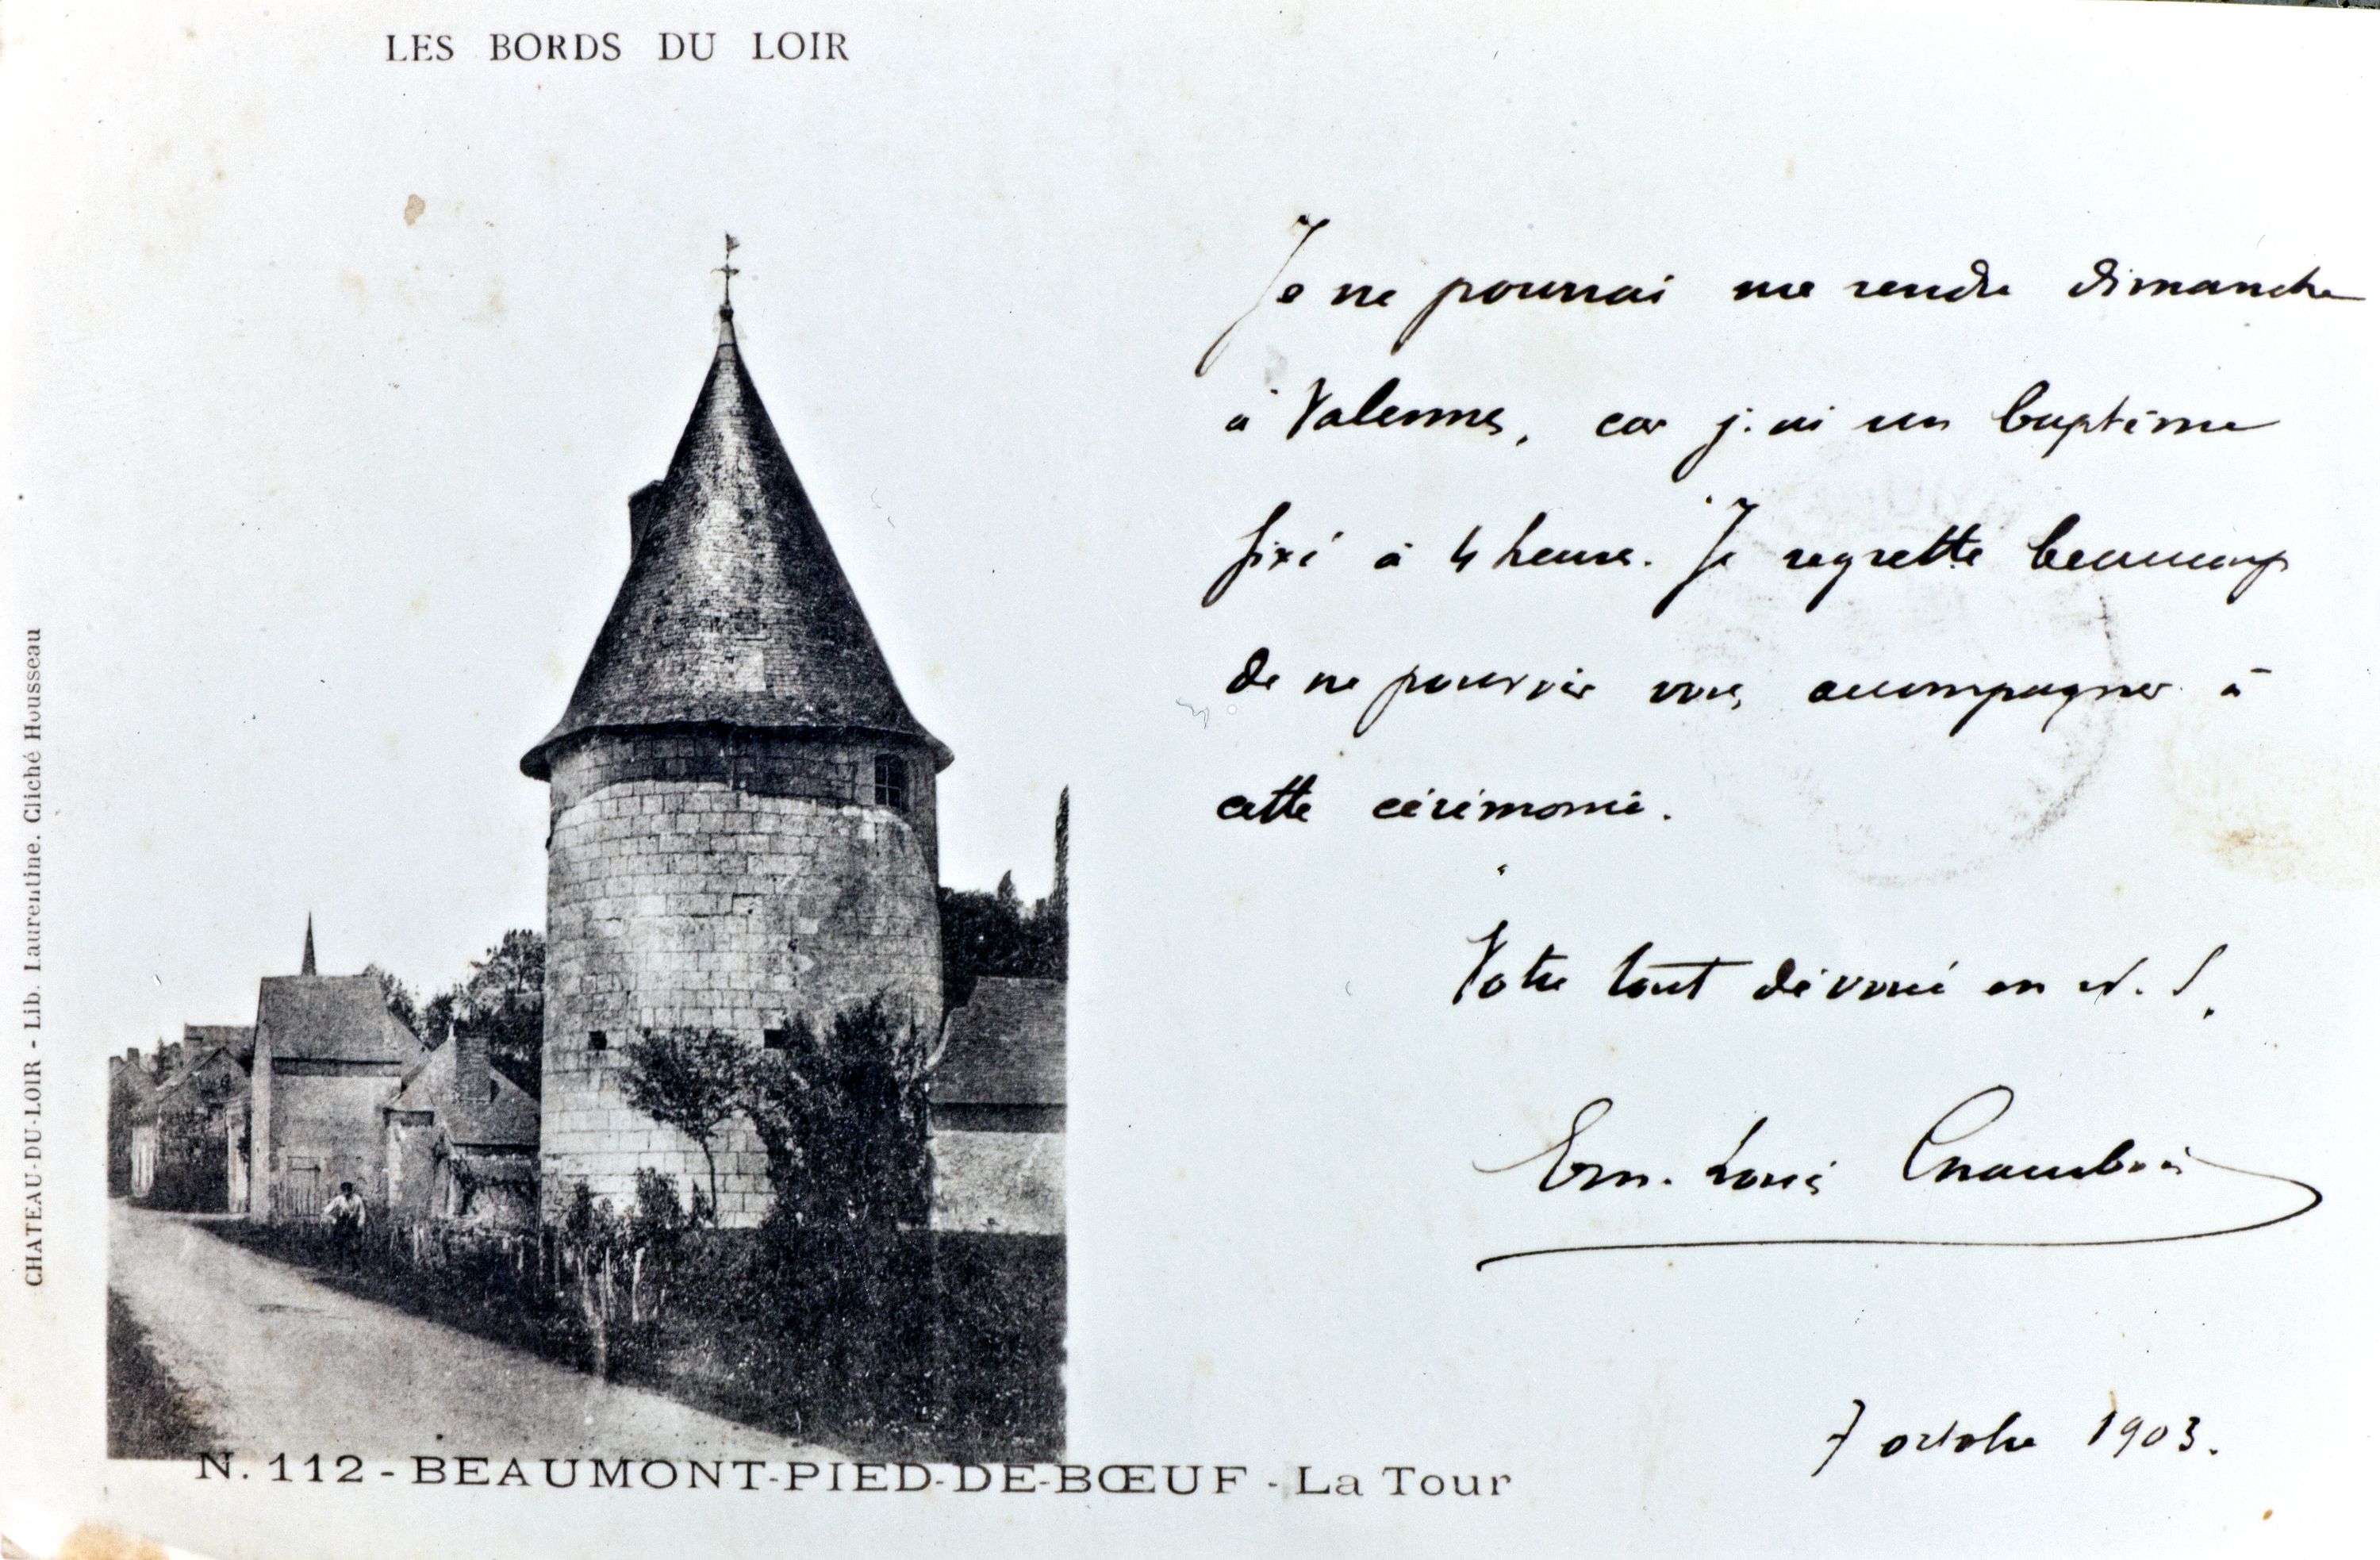 LES BORDS DU LOIR
Je ne pourrai me rendre dimanche
à Valennes, car j'ai un baptême
fixé à 4 heures. Je regrette beaucoup
de ne pouvoir vous accompagner à
cette cérémonie.
Votre tout dévoué en N. S.
Em. Louis Chambois
7 octobre 1903.
CHATEAU-DU-LOIR - Lib. Laurentine. Cliché Housseau
N. 112 - BEAUMONT-PIED-DE-BŒUF - La Tour